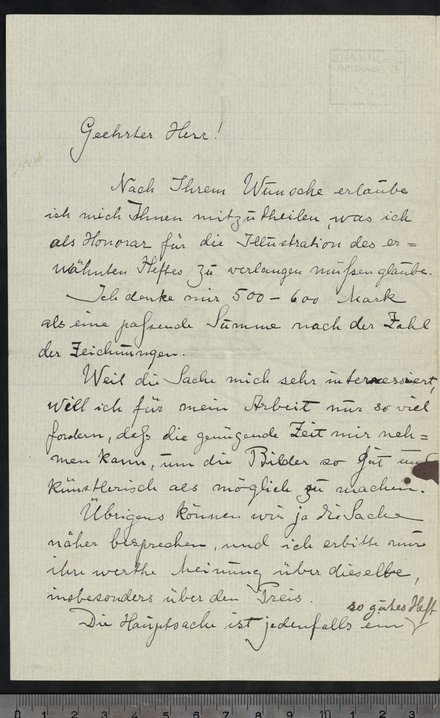 Geehrter Herr!
Nach Ihrem Wunsche erlaube
ich mich Ihnen mitzutheilen, was ich
als Honorar für die Illustration des er=
wähnten Heftes zu verlangen müßen glaube.
Ich denke mir 500 - 600 Mark
als eine paßende Summe nach der Zahl
der Zeichnungen.
Weil die Sache mich sehr interessiert,
will ich für mein Arbeit nur so viel
fordern, daß die genügende Zeit mir neh=
men kann, um die Bilder so gut und
künstlerisch als möglich zu machen.
Übrigens können wir ja die Sache
näher besprechen, und ich erbitte nur
ihre werthe Meinung über dieselbe,
insbesonders über den Preis.
so gutes Heft
Die Hauptsache ist jedenfalls ein
0 1 2 3 4 5 6 7 8 9 10 1 2 3